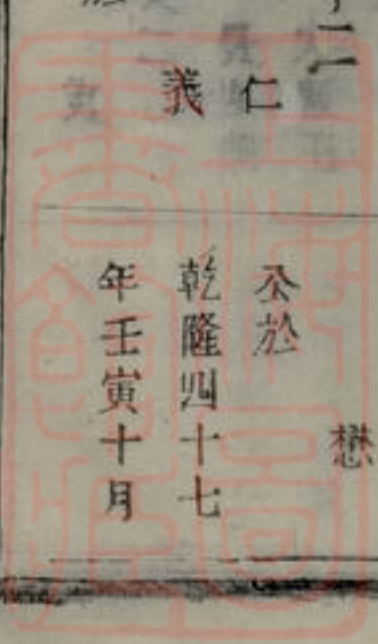 二
仁
義
懋
公於
乾隆四十七
年壬寅十月